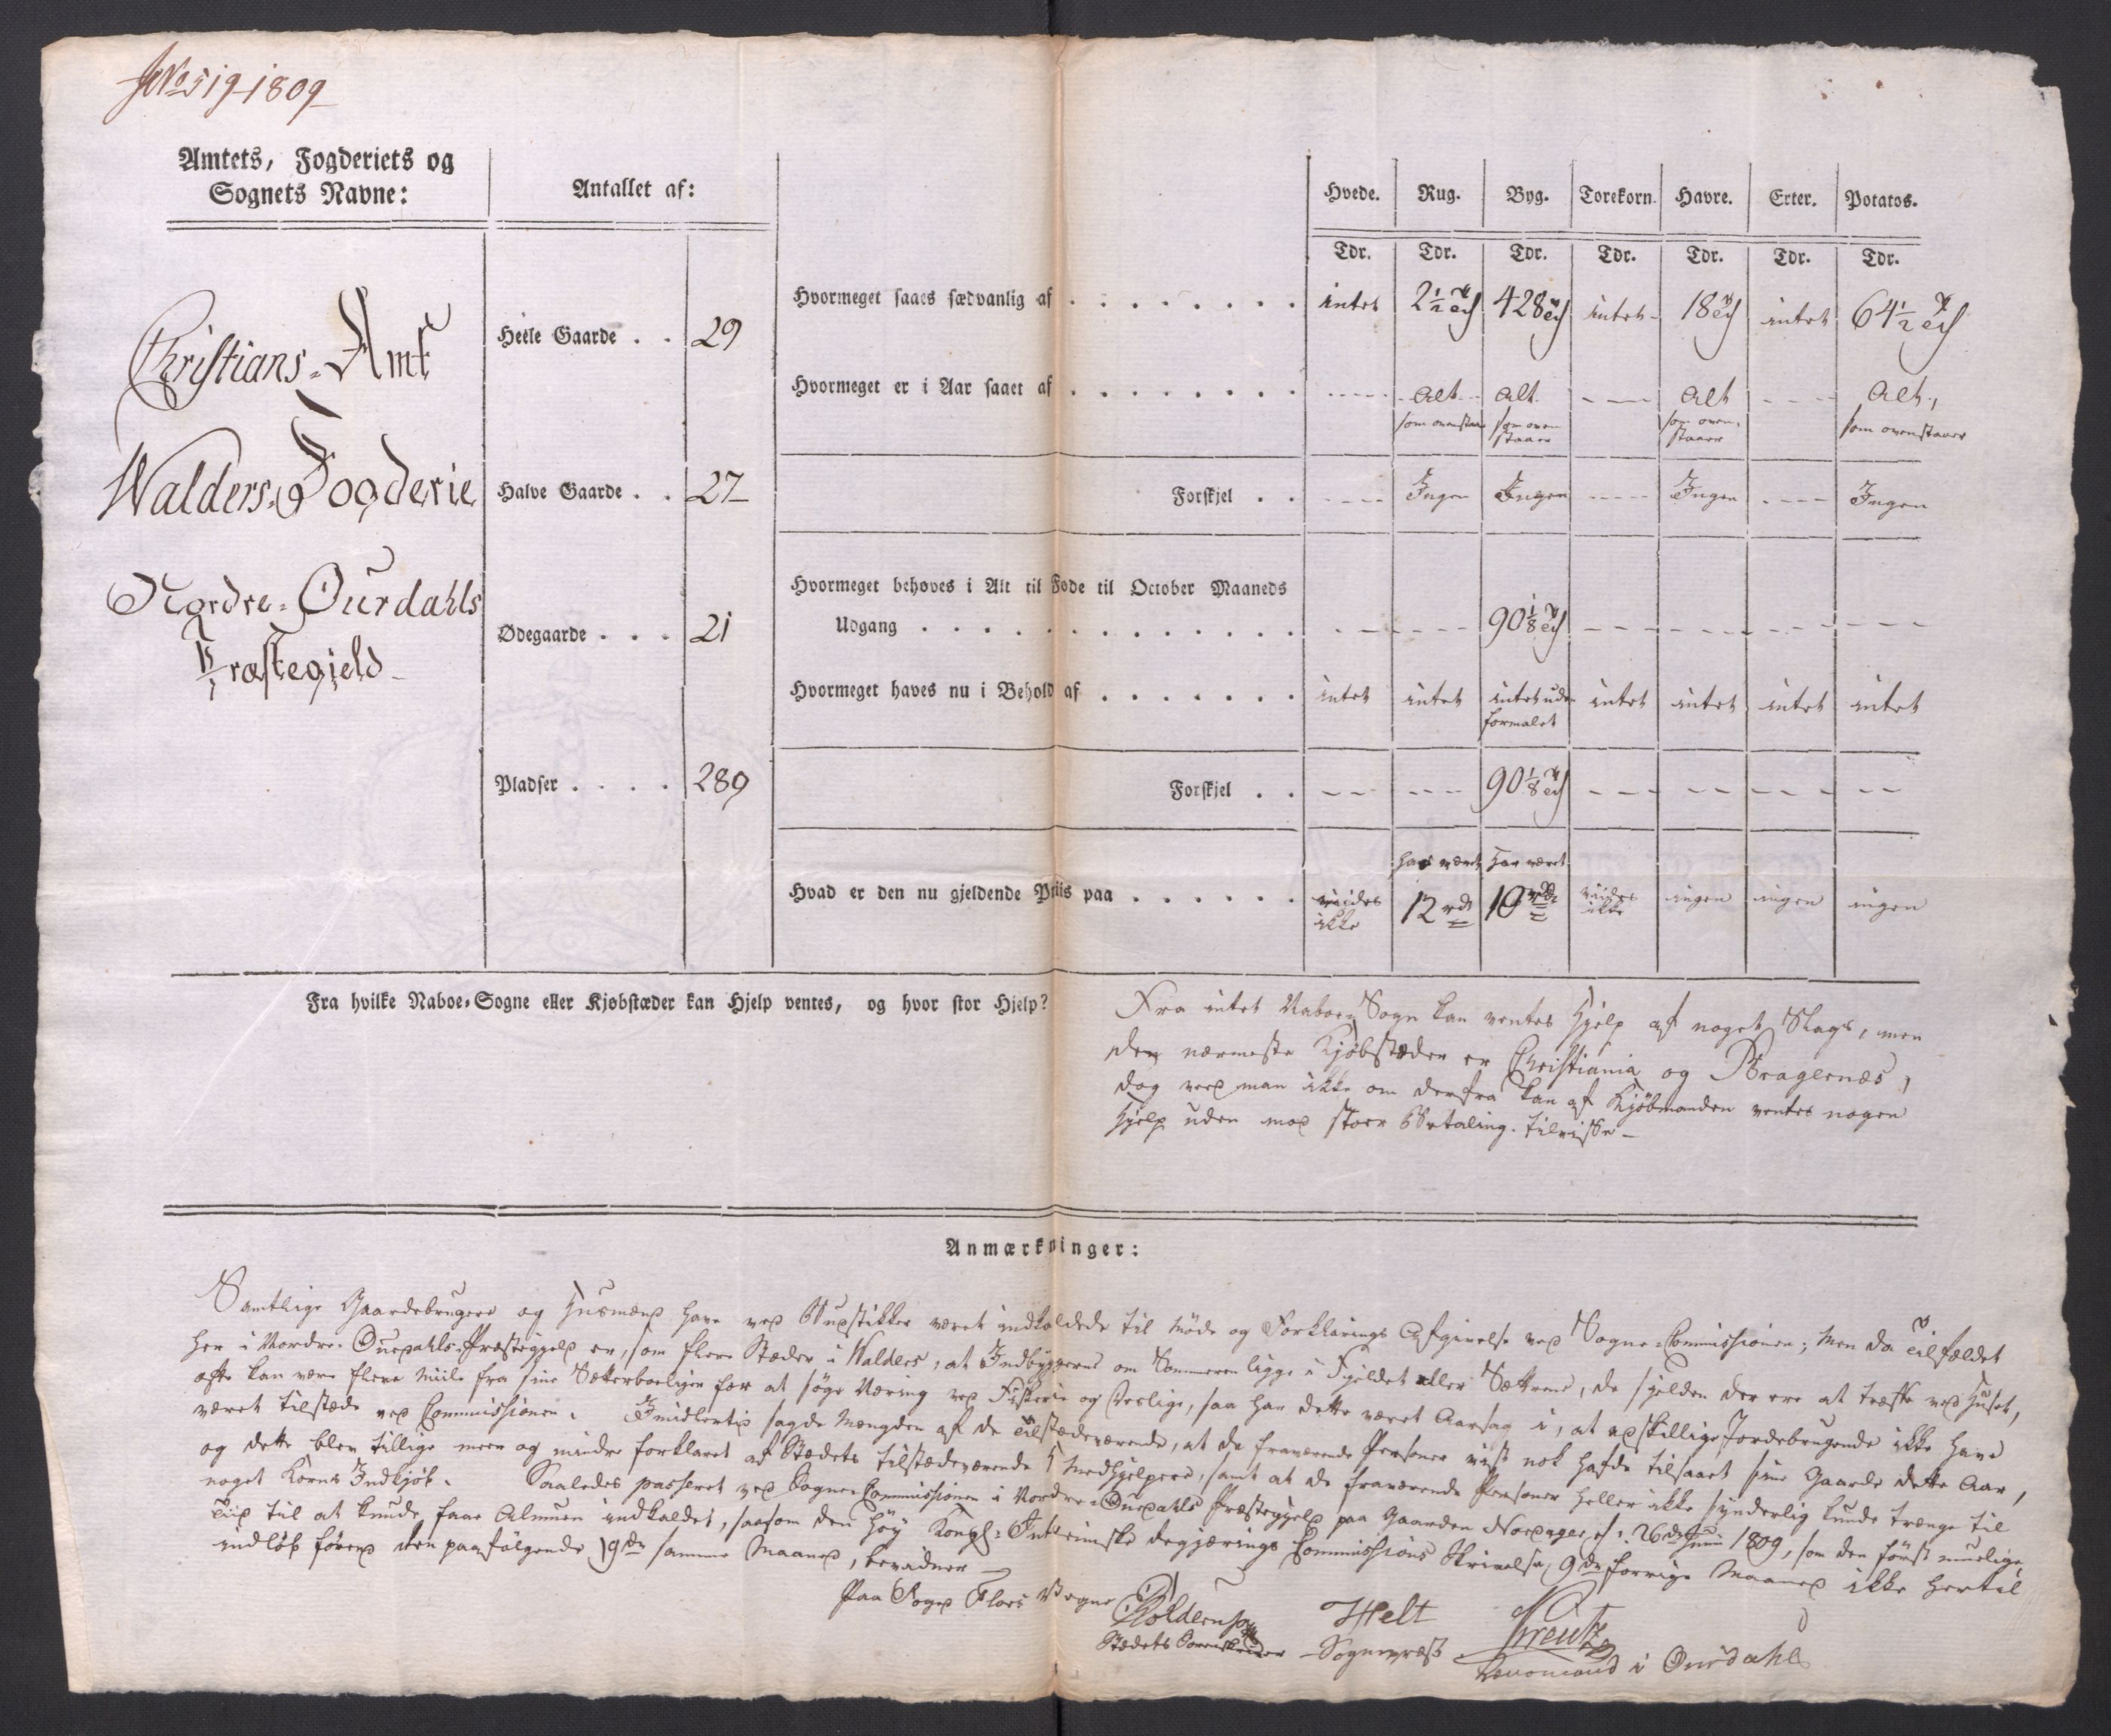 No 519 1809
Amtets, Fogderiets og
Sognets Navne:
Antallet af:
Hvede. Rug. Byg. Torekorn. Havre. Erter. Potatos.
Tdr. Tdr. Tdr. Tdr. Tdr. Tdr. Tdr.
Christians-Amt
Walders-Fogderie
Nordre-Ourdahls
Præstegield
Heele Gaarde . . 29
Halve Gaarde . . 27
Ødegaarde . . . 21
Pladser . . . . 289
Hvormeget saaes sædvanlig af . . . . . . . . intet 2½ 428 intet 18 intet 64½
Hvormeget er i Aar saaet af . . . . . . . . ---- Alt Alt ---- Alt ---- Alt,
som ovenstaar som oven staaer som oven staaer som ovenstaaer
Forskjel . . ---- Ingen Ingen ---- Ingen ---- Ingen
Hvormeget behøves i Alt til Føde til October Maaneds
Udgang . . . . . . . . . . . . 90⅛
Hvormeget haves nu i Behold af . . . . . . . intet intet intet uden formalet intet intet intet intet
Forskjel . . -- --- 90⅛ --- -- --- --
har været har været
Hvad er den nu gjeldende Priis paa . . . . . . viides ikke 12 rd 10 rd viides ikke ingen ingen ingen
Fra hvilke Naboe-Sogne eller Kjøbstæder kan Hjelp ventes, og hvor stor Hjelp?
Fra intet Naboe-Sogn kan ventes Hjelp af noget Slags, men
den nærmeste Kjøbstæder er Christiania og Bragernæs,
dog veed man ikke om derfra kan af Kjøbmanden ventes nogen
Hjelp uden mod stoer Betaling. tilvisse-
Anmærkninger:
Samtlige Gaardebrugere og Huusmænd have ved Budstikker været indkaldede til Møde og Forklarings Afgivelse ved Sogne-Commissionen; Men da Tilfældet
her i Nordre-Ourdahls Præstegjeld er, som flere Stæder i Walders, at Indbyggerne om Sommeren ligge i Fjeldet eller Sættrene, da sjelden der ere at træffe ved Huset,
ofte kan være flere Miile fra sine Sætterboeliger for at søge Næring ved Fiskerie og desligt, saa har dette været Aarsag i, at adskillige Jordebrugende ikke have
været tilstæde ved Commissionen. Imidlertid sagde Mængden af de tilstædeværende, at de fraværende Personer vist nok hafde tilsaaet sine Gaarde dette Aar,
og dette blev tillige meer og mindre forklaret af Stædets tilstædeværende 5 Medhjelpere, samt at de fraværende Personer heller ikke synderlig kunde trænge til
noget Korns Indkjøb. Saaledes passeret ved Sogne-Commissionen i Nordre-Ourdahls Præstegjeld paa Gaarden 26de Junii 1809, som den først muelige
Tiid til at kunde faae Almuen indkaldet, saasom den høy Kongl: Interimske Regjærings Commissions Skrivelse 9de forrige Maaned ikke hertil
indløb førend den paafølgende 19de samme Maaned, bevidner
Paa Foged Vegne
Stædets Sorenskriver
Helt
Sognepræst
Kreutz
Lensmand i Ourdahl